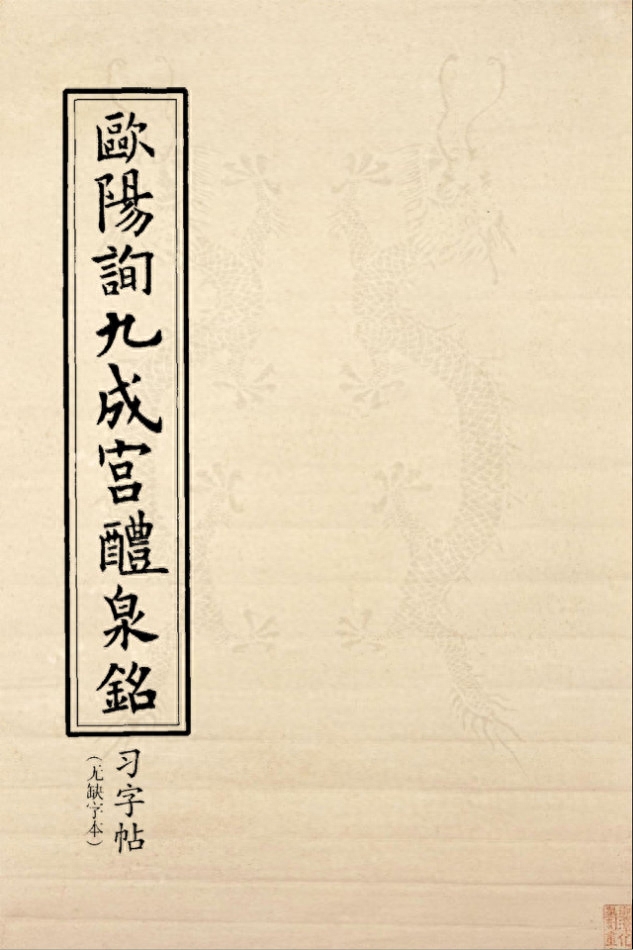 歐陽詢九成宮醴泉銘
习字帖
(无缺字本)